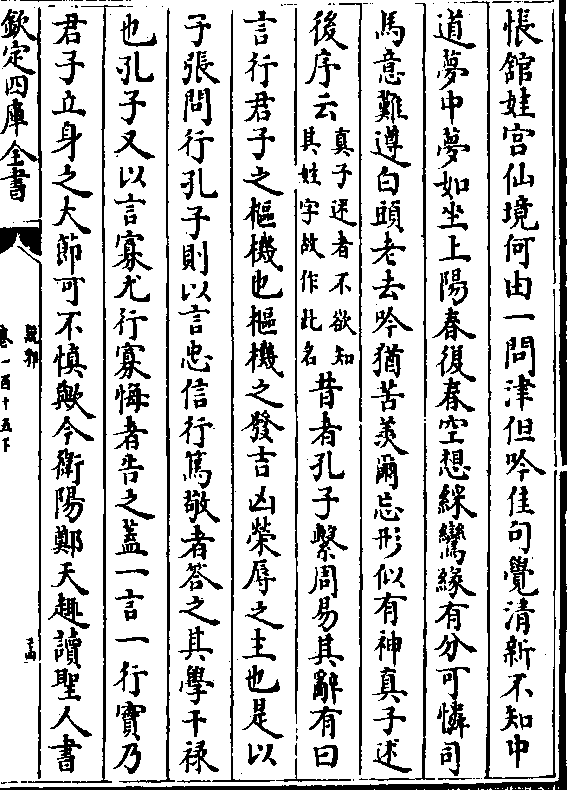 悵舘娃宫仙境何由一問津但吟佳句覺清新不知中
道夢中夢如坐上陽春復春空想綵鸞緣有分可憐司
馬意難遵白頭老去吟猶苦羨爾忘形似有神真子述
後序云真子述者不欲知其姓字故作此名昔者孔子繫周易其辭有曰
言行君子之樞機也樞機之發吉凶榮辱之主也是以
子張問行孔子則以言忠信行篤敬者答之其學干祿
也孔子又以言寡尤行寡悔者告之蓋一言一行實乃
君子立身之大節可不慎歟今衡陽鄭天趣讀聖人書
欽定四庫全書
說郛
卷一百十五下